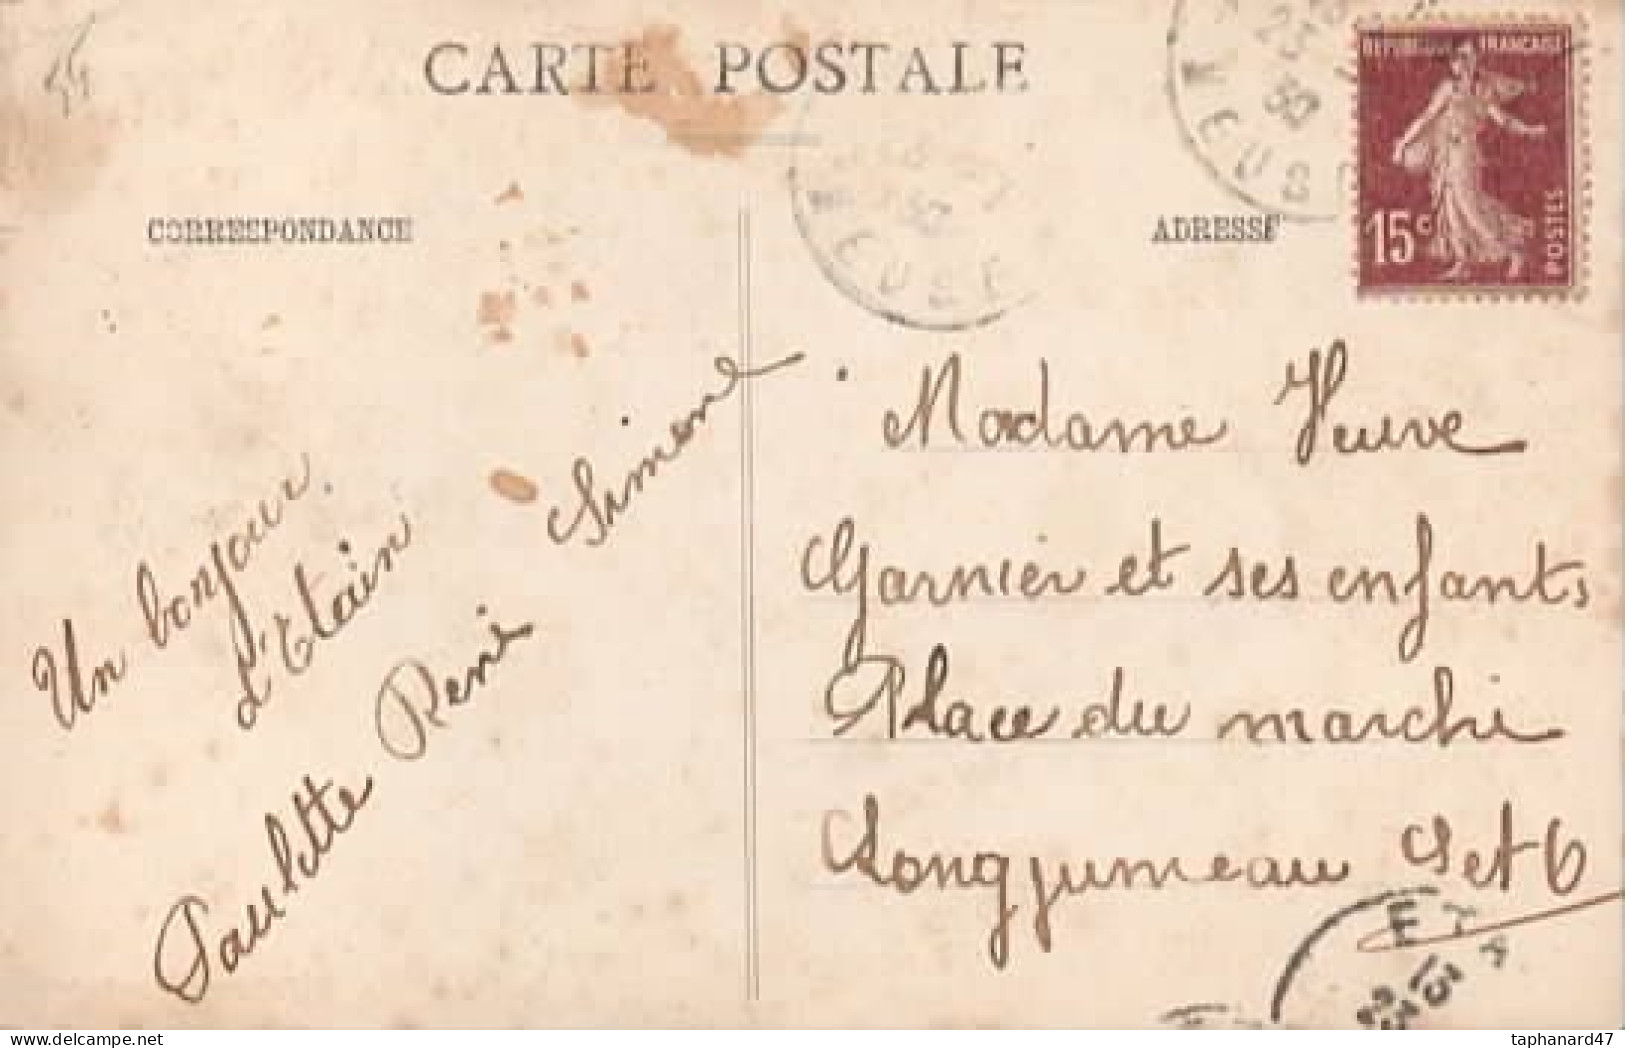 CARTE POSTALE
CORRESPONDANCE
ADRESSE
REPUBLIQUE FRANCAISE
15c
POSTES
MEUSE
MEUSE
Un bonjour.
d'Etain
Paulette René Simone
Madame Veuve
Garnier et ses enfants
Place du marché
Longjumeau Set O
ETA
taphanard47